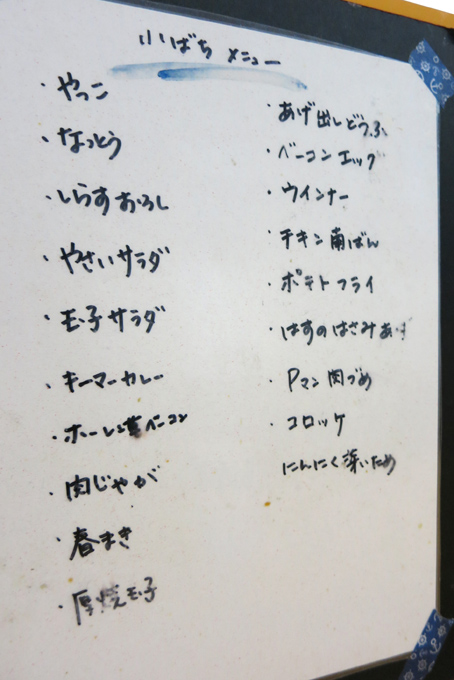 小ばち メニュー
・やっこ
・なっとう
・しらすおろし
・やさいサラダ
・玉子サラダ
・キーマーカレー
・ホーレン草ベーコン
・肉じゃが
・春まき
・厚焼玉子
・あげ出しどうふ
・ベーコンエッグ
・ウインナー
・チキン南ばん
・ポテトフライ
・はすのはさみあげ
・Pマン肉づめ
・コロッケ
にんにく いため